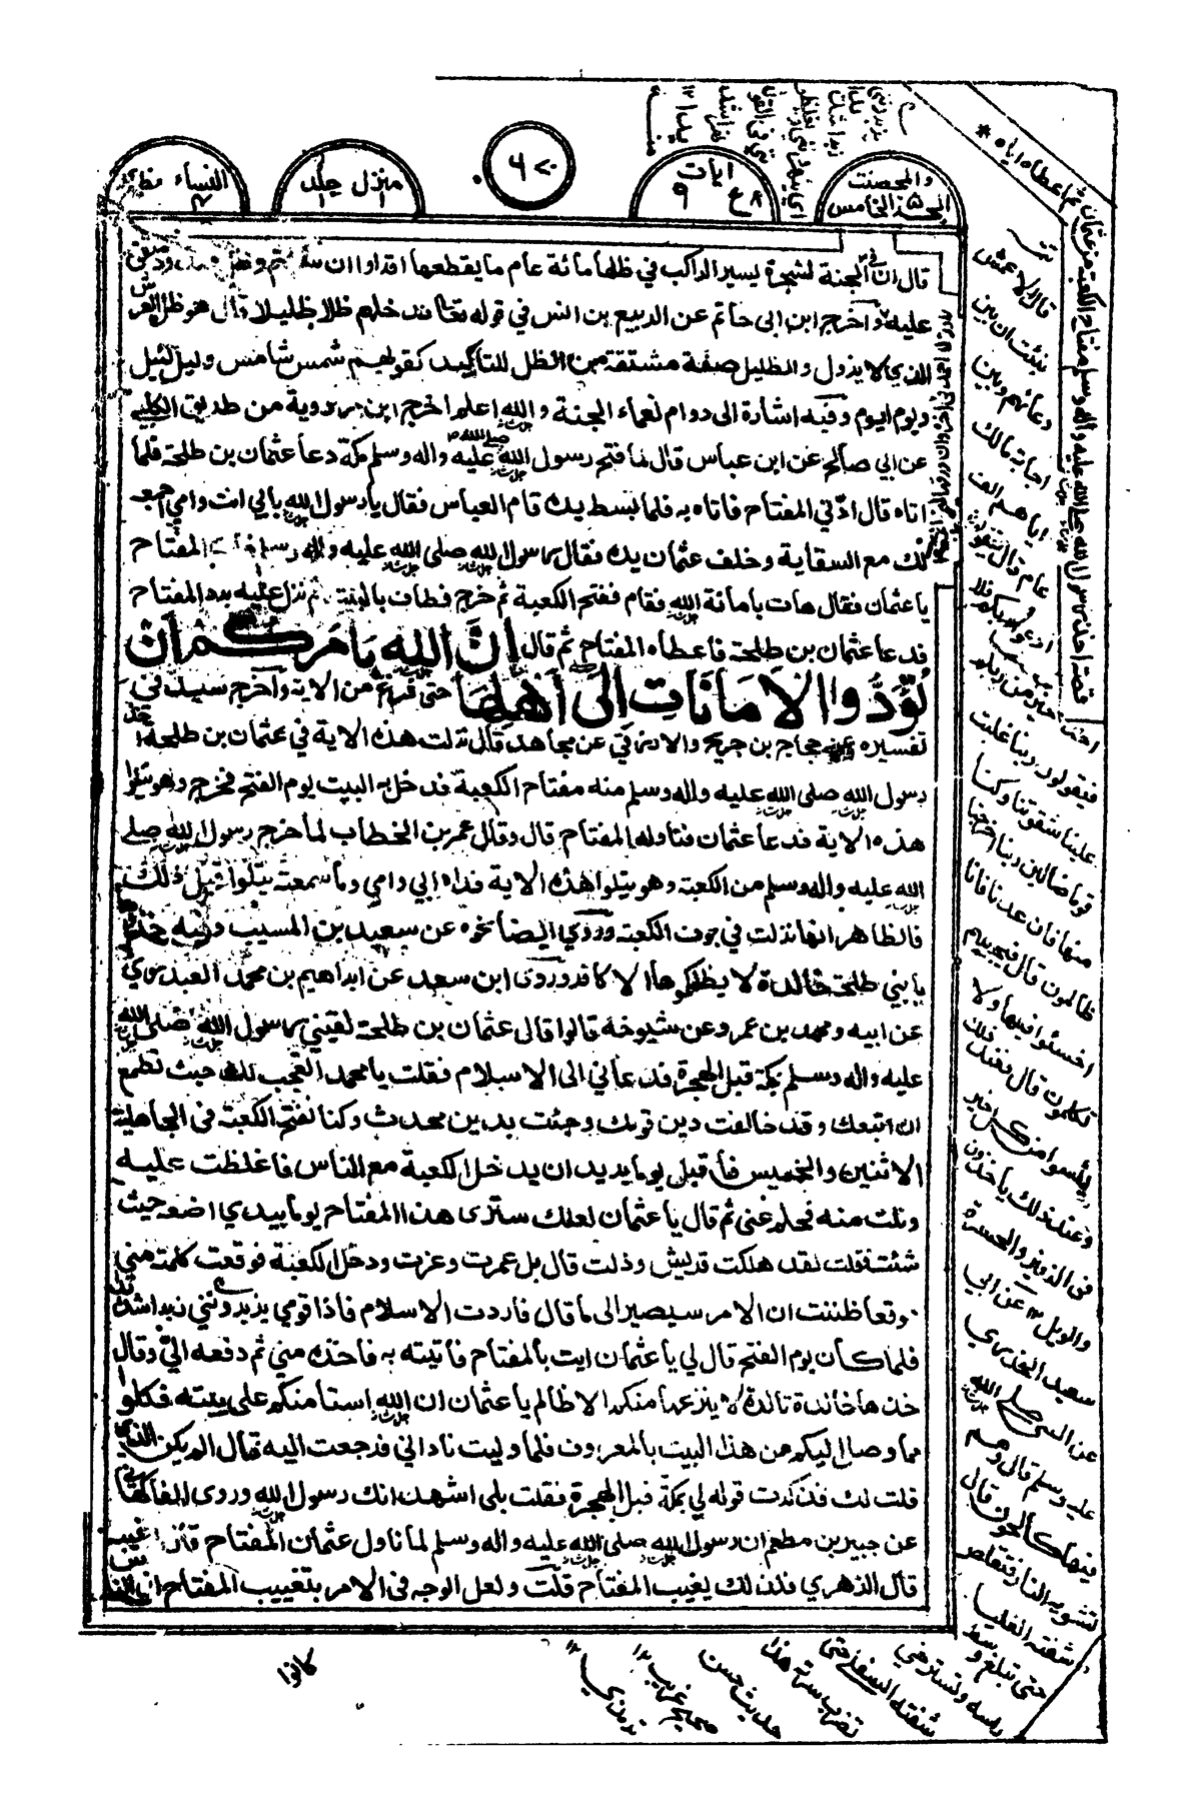 النساء
منزل
٦٠٧
ايات
والمحصنت
الجزء الخامس
قال ان في الجنة لشجرة يسير الراكب في ظلها مائة عام ما يقطعها اقراوا ان شئتم وظل
عليه واخرج ابن ابى حاتم عن الربيع بن انس في قوله تعالى ندخلهم ظلا ظليلا قال هو ظل العرش
الذي لا يزول والظليل صفة مشتقة من الظل للتاكيد كقولهم شمس شامس وليل لئيل
ويوم ايوم وفيه اشارة الى دوام نعماء الجنة والله اعلم اخرج ابن مردوية من طريق الكلبي
عن ابي صالح عن ابن عباس قال لما فتح رسول الله صلى الله عليه واله وسلم مكة دعا عثمان بن طلحة فلما
اتاه قال ادني المفتاح فاتاه به فلما بسط يده قام العباس فقال يا رسول الله بابي انت وامي اجمعه
لي مع السقاية وخلف عثمان يده فقال رسول الله صلى الله عليه واله وسلم المفتاح
يا عثمان فقال هات بامانة الله فقام ففتح الكعبة ثم خرج فطاف بالبيت ثم نزل عليه برد المفتاح
فدعا عثمان بن طلحة فاعطاه المفتاح ثم قال ان الله يامركم ان
تؤدوا الامانات الى اهلها حتى فرغ من الاية واخرج سنيد في
تفسيره عن حجاج بن جريج والازرقي عن مجاهد قال نزلت هذه الاية في عثمان بن طلحة اخذ
رسول الله صلى الله عليه واله وسلم منه مفتاح الكعبة فدخل به البيت يوم الفتح فخرج وهو يتلوا
هذه الاية فدعا عثمان فناوله المفتاح قال وقال عمر بن الخطاب لما خرج رسول الله صلى
الله عليه واله وسلم من الكعبة وهو يتلوا هذه الاية فداه ابي وامي وما سمعته يتلوا قبل ذلك
فالظاهر انها نزلت في جوف الكعبة وروي ايضا نحوه عن سعيد بن المسيب وفيه خذوها
يا بني طلحة خالدة لا يظلمكموها الا كافر وروى ابن سعد عن ابراهيم بن محمد العبدري
عن ابيه ومحمد بن عمر وعن شيوخه قالوا قال عثمان بن طلحة لقيني رسول الله صلى الله
عليه واله وسلم بمكة قبل الهجرة فدعاني الى الاسلام فقلت يا محمد العجب لك حيث تطمع
ان اتبعك وقد خالفت دين قومك وجئت بدين محدث وكنا نفتح الكعبة فى الجاهلية
الاثنين والخميس فاقبل يوما يريد ان يدخل الكعبة مع الناس فاغلظت عليه
ونلت منه فحلم عني ثم قال يا عثمان لعلك سترى هذا المفتاح يوما بيدي اضعه حيث
شئت فقلت لقد هلكت قريش وذلت قال بل عمرت وعزت ودخل الكعبة فوقعت كلمته مني
موقعا ظننت ان الامر سيصير الى ما قال فاردت الاسلام فاذا قومي يزبرونني زبرا شديدا
فلما كان يوم الفتح قال لي يا عثمان ايت بالمفتاح فاتيته به فاخذه مني ثم دفعه الي وقال
خذها خالدة تالدة لا ينزعها منكم الا ظالم يا عثمان ان الله استامنكم على بيته فكلوا
مما وصل اليكم من هذا البيت بالمعروف فلما وليت ناداني فرجعت اليه فقال الم يكن الذي
قلت لك فذكرت قوله لي بمكة قبل الهجرة فقلت بلى اشهد انك رسول الله وروى الفاكهاني
عن جبير بن مطعم ان رسول الله صلى الله عليه واله وسلم لما ناول عثمان المفتاح قال غيبه
قال الزهري فلذلك يغيب المفتاح قلت ولعل الوجه فى الامر بتغييب المفتاح ان الناس
كانوا
ثم اعطاه اياه *
قصة اخذ رسول الله صلى الله عليه واله وسلم مفتاح الكعبة من عثمان
قال الاعمش
نبئت ان بين
دعائهم وبين
اجابة مالك
اياهم الف
عام قال فيقولون
ادعوا ربكم فلا
احد خير من ربكم
فيقولون ربنا غلبت
علينا شقوتنا وكنا
قوما ضالين ربنا اخرجنا
منها فان عدنا فانا
ظالمون قال فيجيبهم
اخسئوا فيها ولا
تكلمون قال فعند ذلك
يئسوا من كل خير
وعند ذلك ياخذون
فى الزفير والحسرة
والويل ١٢ عن ابي
سعيد الخدري
عن النبي صلى الله
عليه وسلم قال وهم
فيها كالحون قال
تشويه النار فتقلص
شفته العليا
حتى تبلغ وسط
راسه وتسترخي
شفته السفلى حتى
تضرب سرته هذا
حديث حسن
صحيح غريب ١٢
ترمذي ١٢